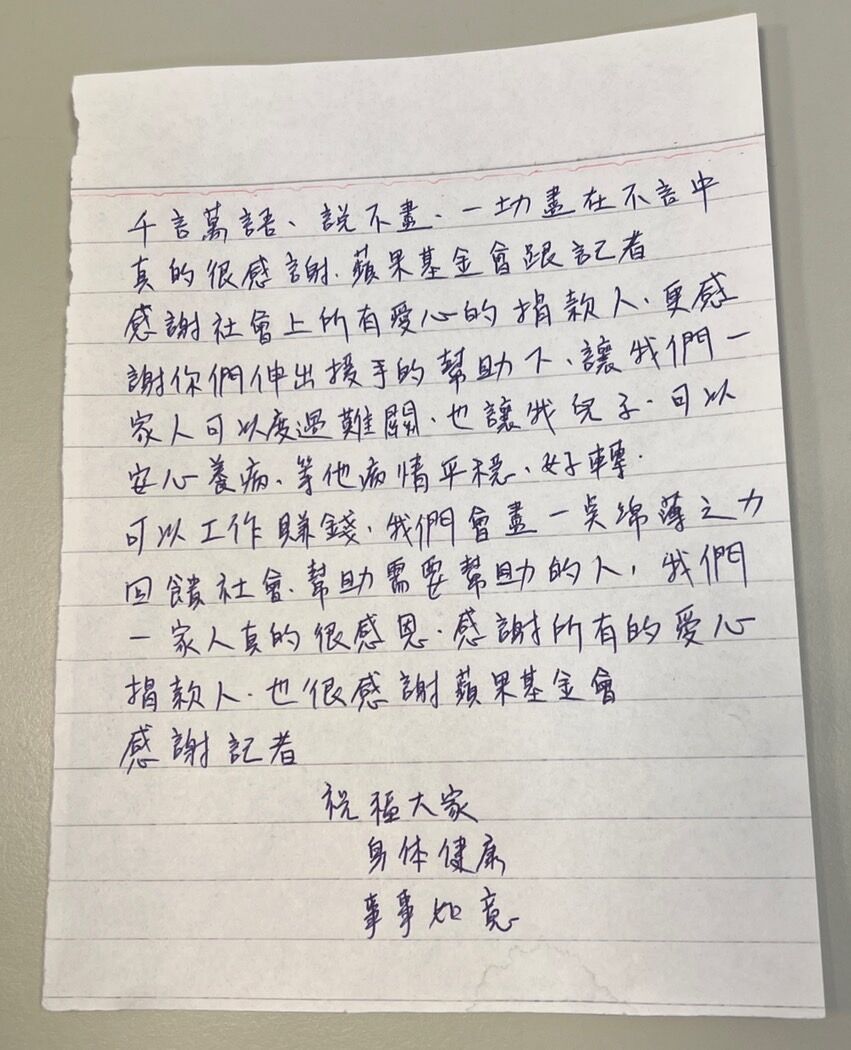 千言萬語、說不盡、一切盡在不言中
真的很感謝.蘋果基金會跟記者
感謝社會上所有愛心的捐款人.更感
謝你們伸出援手的幫助下、讓我們一
家人可以度過難關.也讓我兒子.可以
安心養病、等他病情平穩、好轉.
可以工作賺錢、我們會盡一點綿薄之力
回饋社會.幫助需要幫助的人，我們
一家人真的很感恩.感謝所有的愛心
捐款人.也很感謝蘋果基金會
感謝記者
祝福大家
身体健康
事事如意